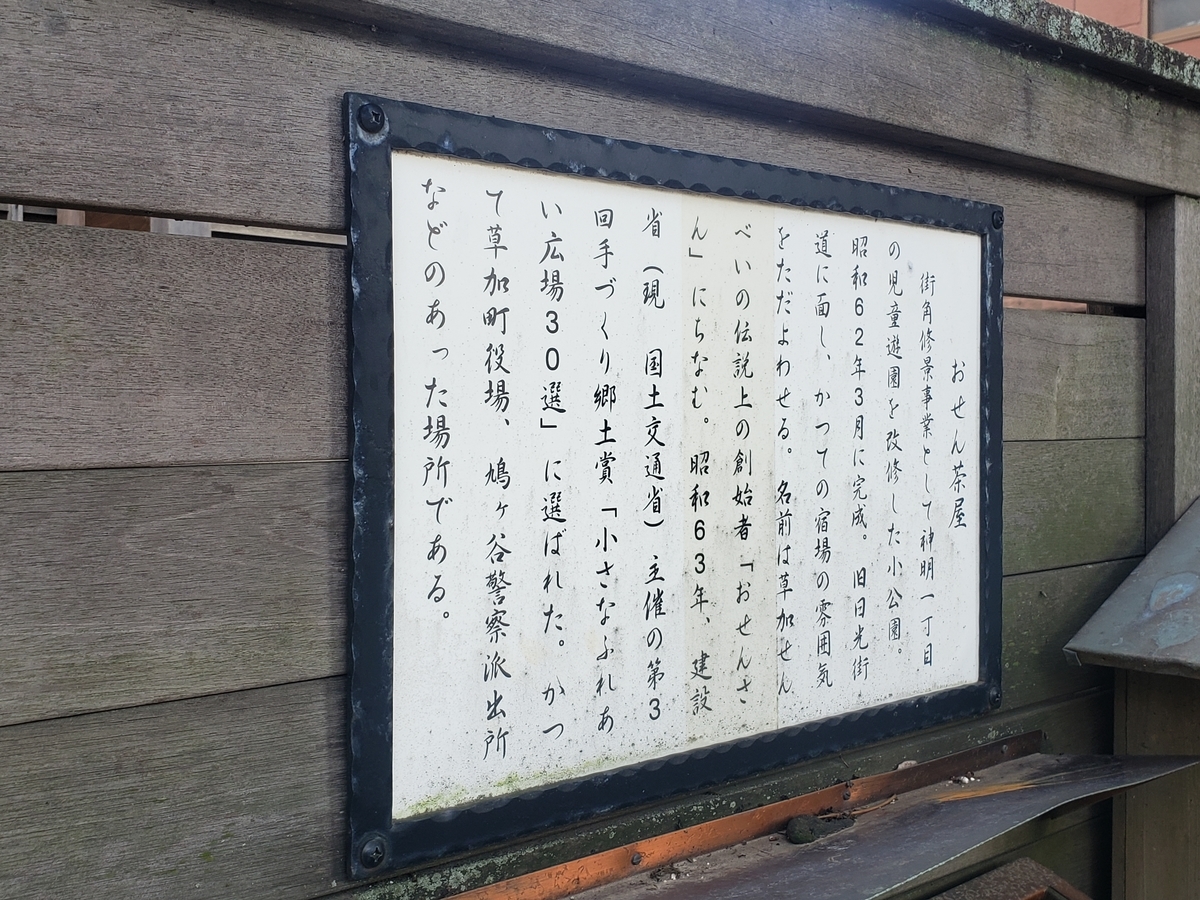 おせん茶屋
街角修景事業として神明一丁目
の児童遊園を改修した小公園。
昭和62年3月に完成。旧日光街
道に面し、かつての宿場の雰囲気
をただよわせる。名前は草加せん
べいの伝説上の創始者「おせんさ
ん」にちなむ。昭和63年、建設
省（現　国土交通省）主催の第3
回手づくり郷土賞「小さなふれあ
い広場30選」に選ばれた。かつ
て草加町役場、鳩ヶ谷警察派出所
などのあった場所である。